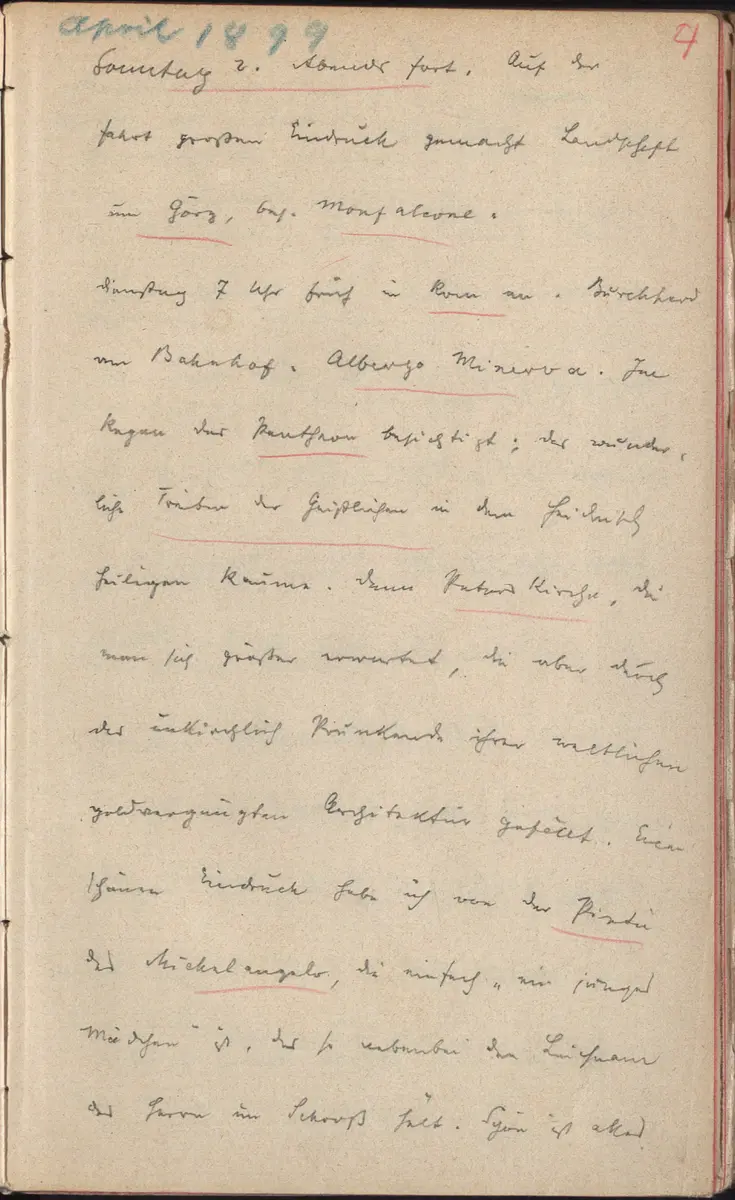 April 1899
4
Sonntag 2. Abends fort. Auf der
Fahrt großen Eindruck gemacht Landschaft
um Görz, bes. Monfalcone.
Dienstag 7 Uhr früh in Rom an. Burckhard
am Bahnhof. Albergo Minerva. Im
Regen das Pantheon besichtigt; das wunder-
liche Treiben der Geistlichen in dem heidnisch
heiligen Raume. Dann Peterskirche, die
man sich größer erwartet, die aber durch
das unkirchlich Prunkende ihrer weltlichen
Architektur gefällt. Einen
schönen Eindruck habe ich von der Pietà
des Michelangelo, die einfach „ein junges
Mädchen“ ist, das so nebenbei den Leichnam
des Herrn im Schooß hält. Schön ist alles